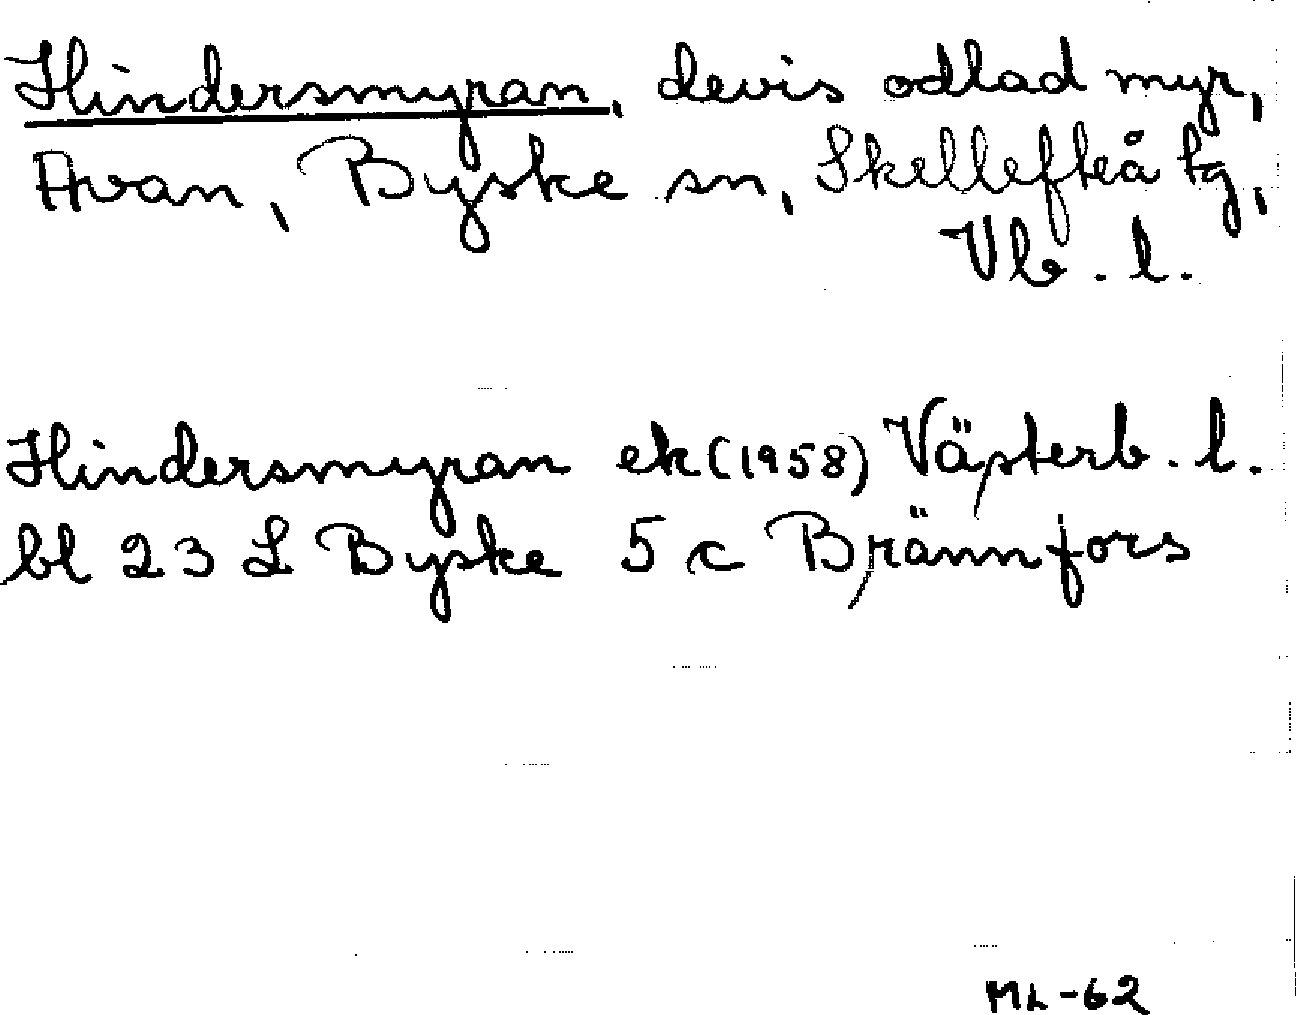 Hindersmyran, delvis odlad myr,
Avan, Byske sn, Skellefteå tg,
Vb. l.
Hindersmyran ek (1958) Västerb. l.
bl 23 L Byske 5 c Brännfors
ML-62